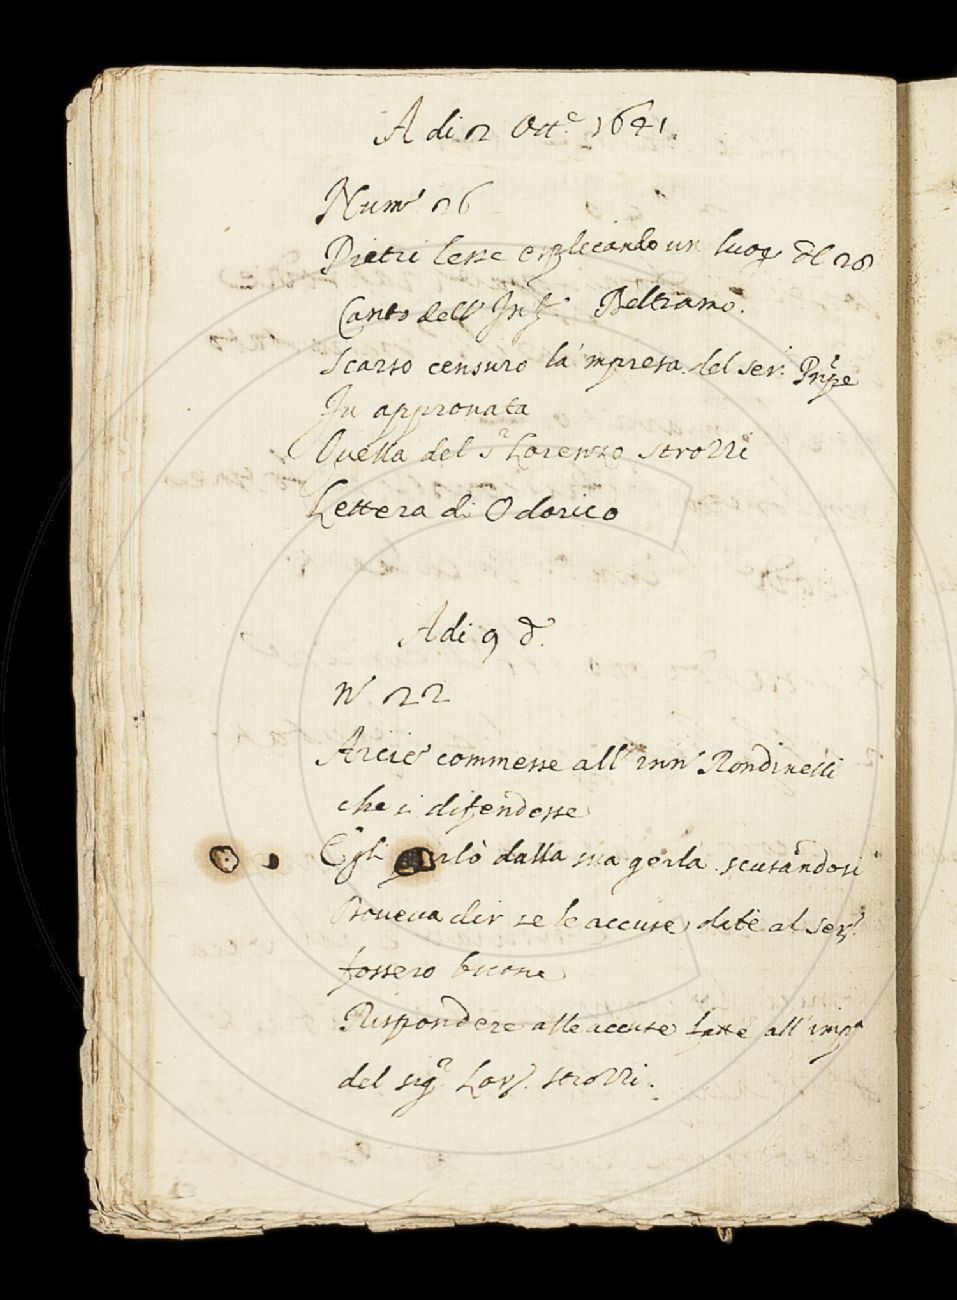 A di 2 Ott.e 1641
Num.o 26
Pietri lesse esplicando un luog.o dl 28
Canto dell' Inf.o Beltramo.
Scarso censurò la 'mpresa del Ser. Prīpe
Fu approuata
Quella del S.r Lorenzo Strozzi
Lettera di Odorico
A di 9 d.o
N.o 22
Arcic.o commesse all' Inn.o Rondinelli
che si difendesse
Egli parlò dalla sua gerla scusandosi
Doueua dir se le accuse date al Ser.
fossero buone
Rispondere alle accuse fatte all' imp.a
del sig.r Lor. Strozzi.